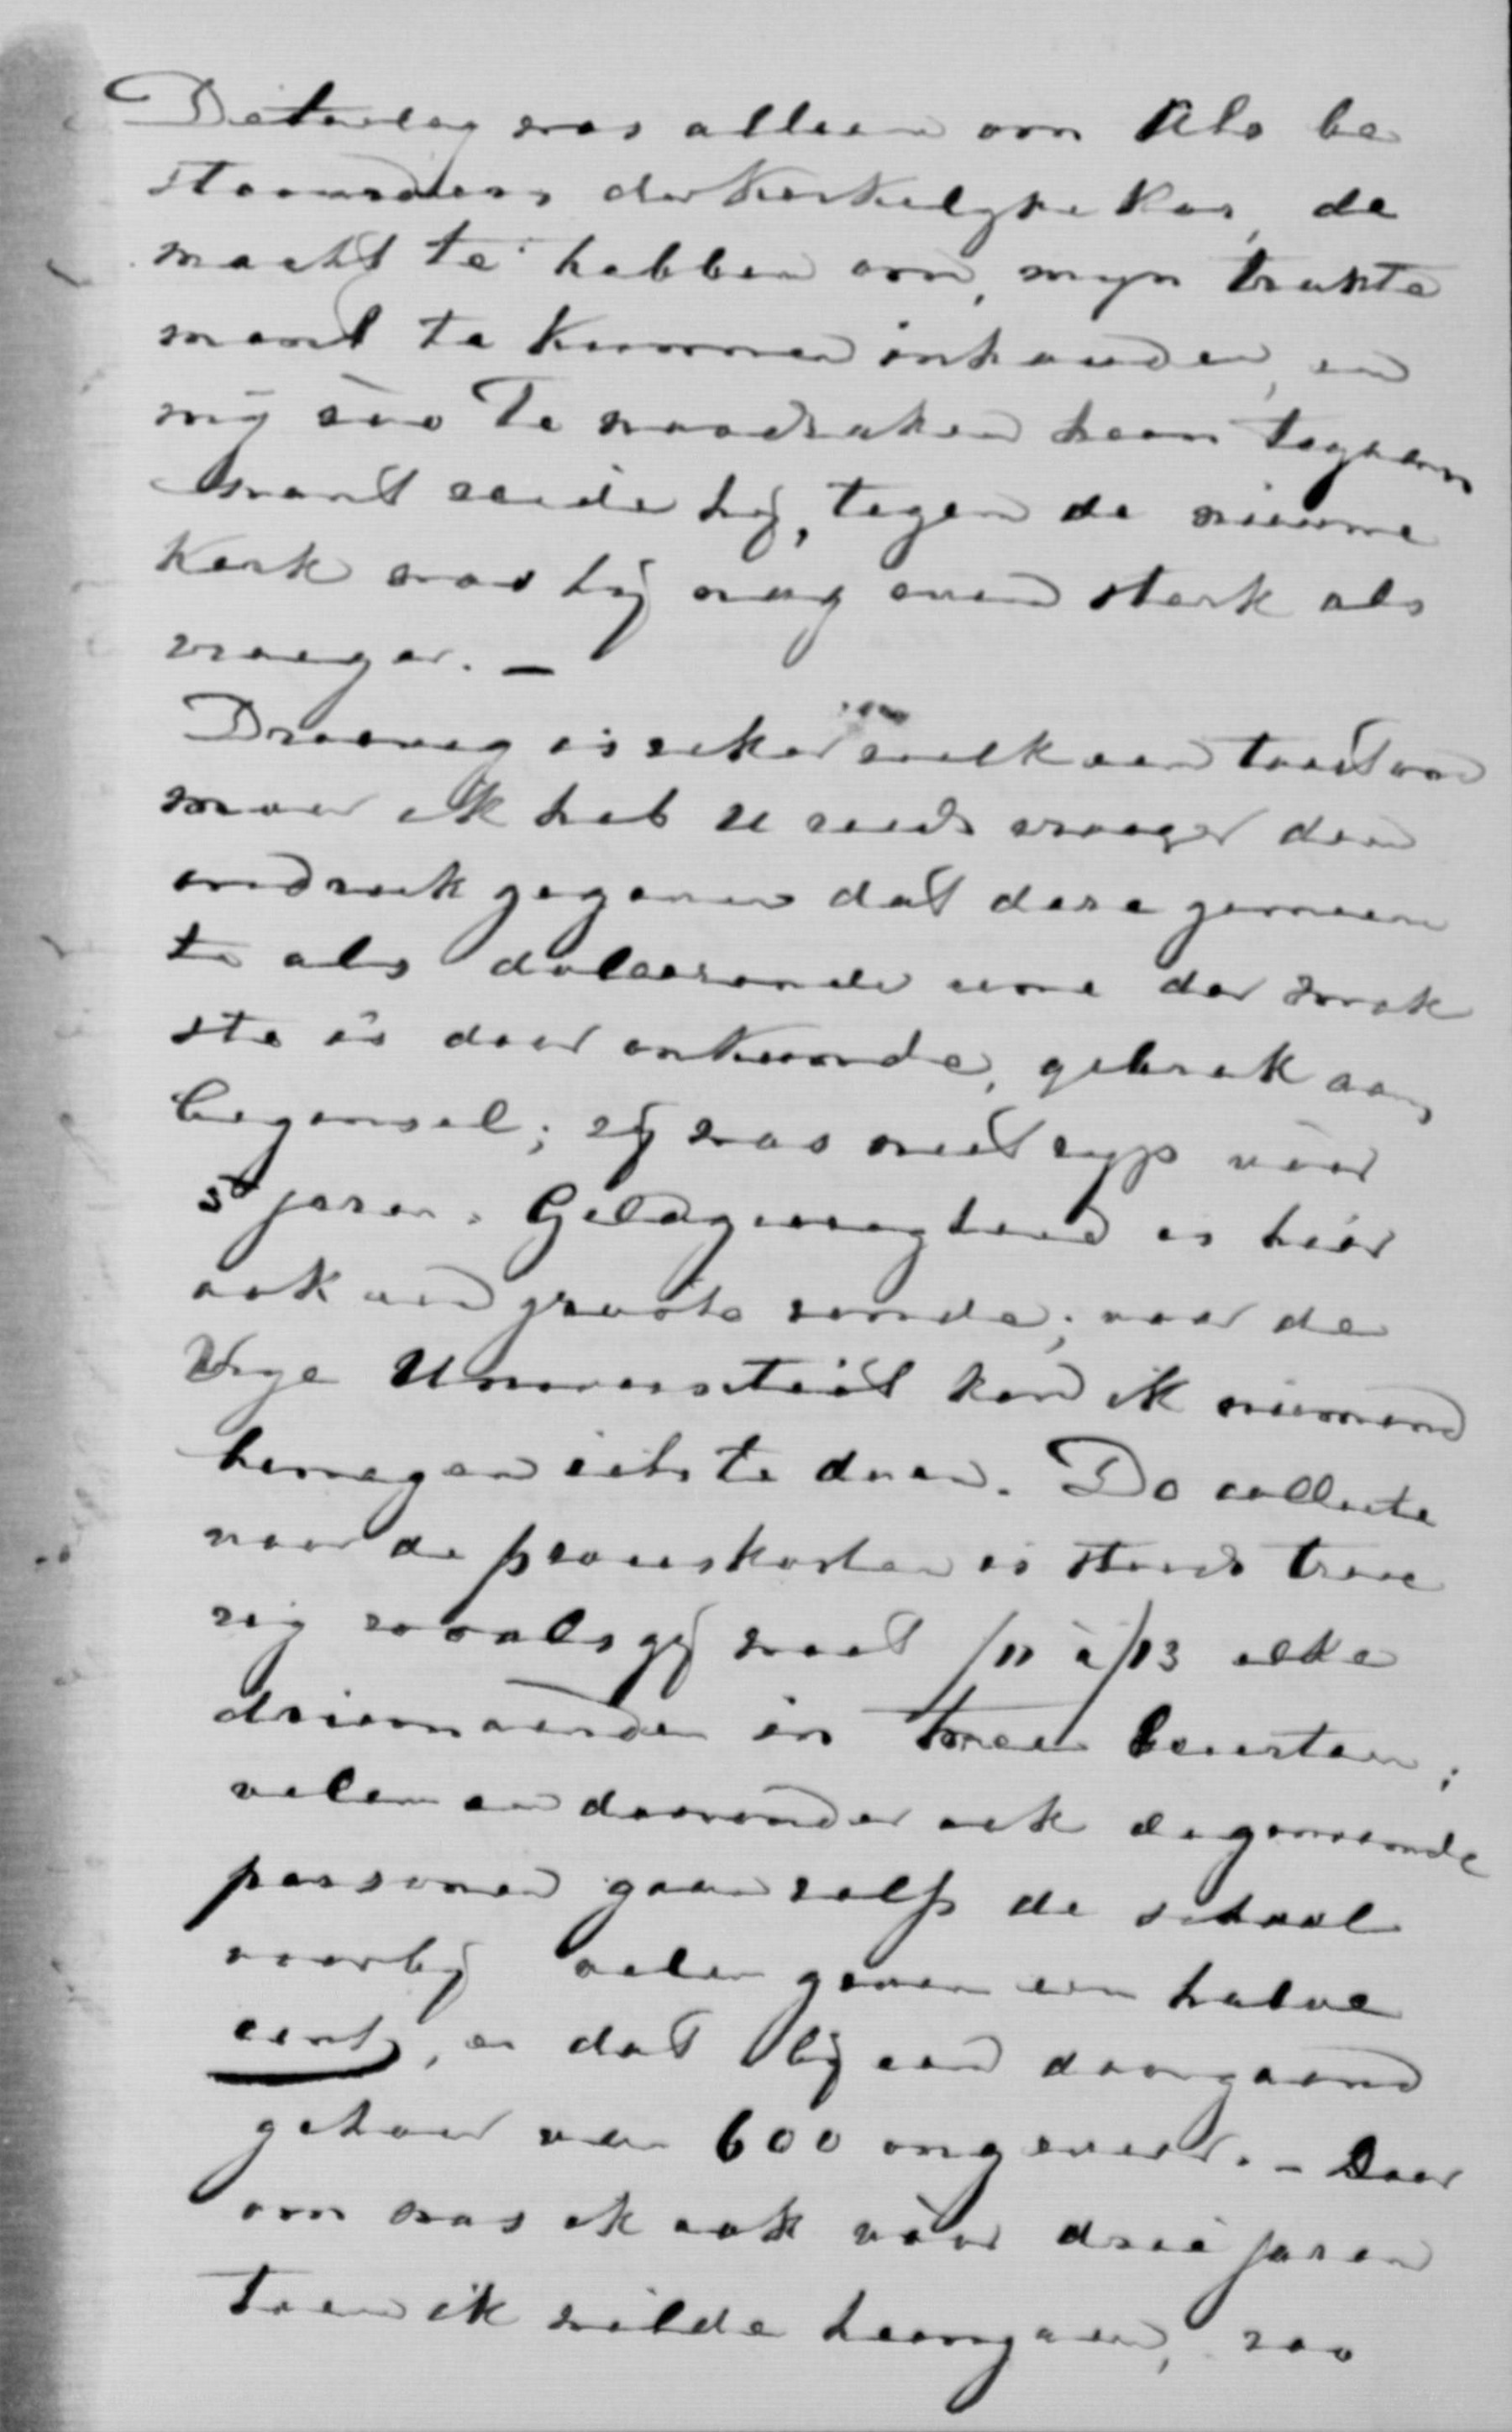 was alleen om als be
stuurders der Kerkelyke Kas, de
macht te hebben om, myn trakte
ment te kunnen inhouden, en
mij zoo te noodzaken heen te gaan
want zeide hij, tegen de nieuwe
Kerk was hij nog even sterk als
vroeger. –
Droevig is zeker zulk een toestand
maar ik heb U reeds vroeger den
indruk gegeven dat deze gemeen
te als doleerende eene der zwak
ste is door onkunde, gebrek aan
beginsel; zij was niet ryp vóór
5 jaren. Geldgierigheid is hier
ook een groote zonde; voor de
Vrye Universiteit kan ik niemand
bewegen iets te doen. De collecte
voor de proceskosten is steeds treu
rig zooals gij weet f11 à f13 elke
drie maanden in twee beurten;
velen en daaronder ook de genoemde
personen gaan zelfs de schaal
voorbij velen geven een halve
cent, en dat bij een doorgaand
gehoor van 600 ongeveer. – Daar
om was ik ook vóór drie jaren
toen ik wilde heengaan, zoo